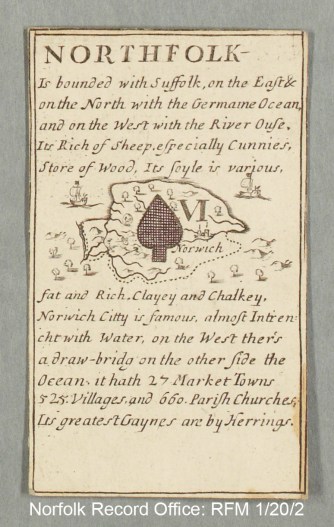 NORTHFOLK-
Is bounded with Suffolk, on the East &
on the North with the Germaine Ocean,
and on the West with the River Ouse.
Its Rich of Sheep, especially Cunnies,
Store of Wood, Its soyle is various,
VI
Norwich
fat and Rich, Clayey and Chalkey.
Norwich Citty is famous, almost Intren
cht with Water, on the West thers
a draw-bridg on the other side the
Ocean, it hath 27 Market Towns
525. Villages, and 660. Parish Churches,
Its greatest Gaynes are by Herrings.
Norfolk Record Office: RFM 1/20/2